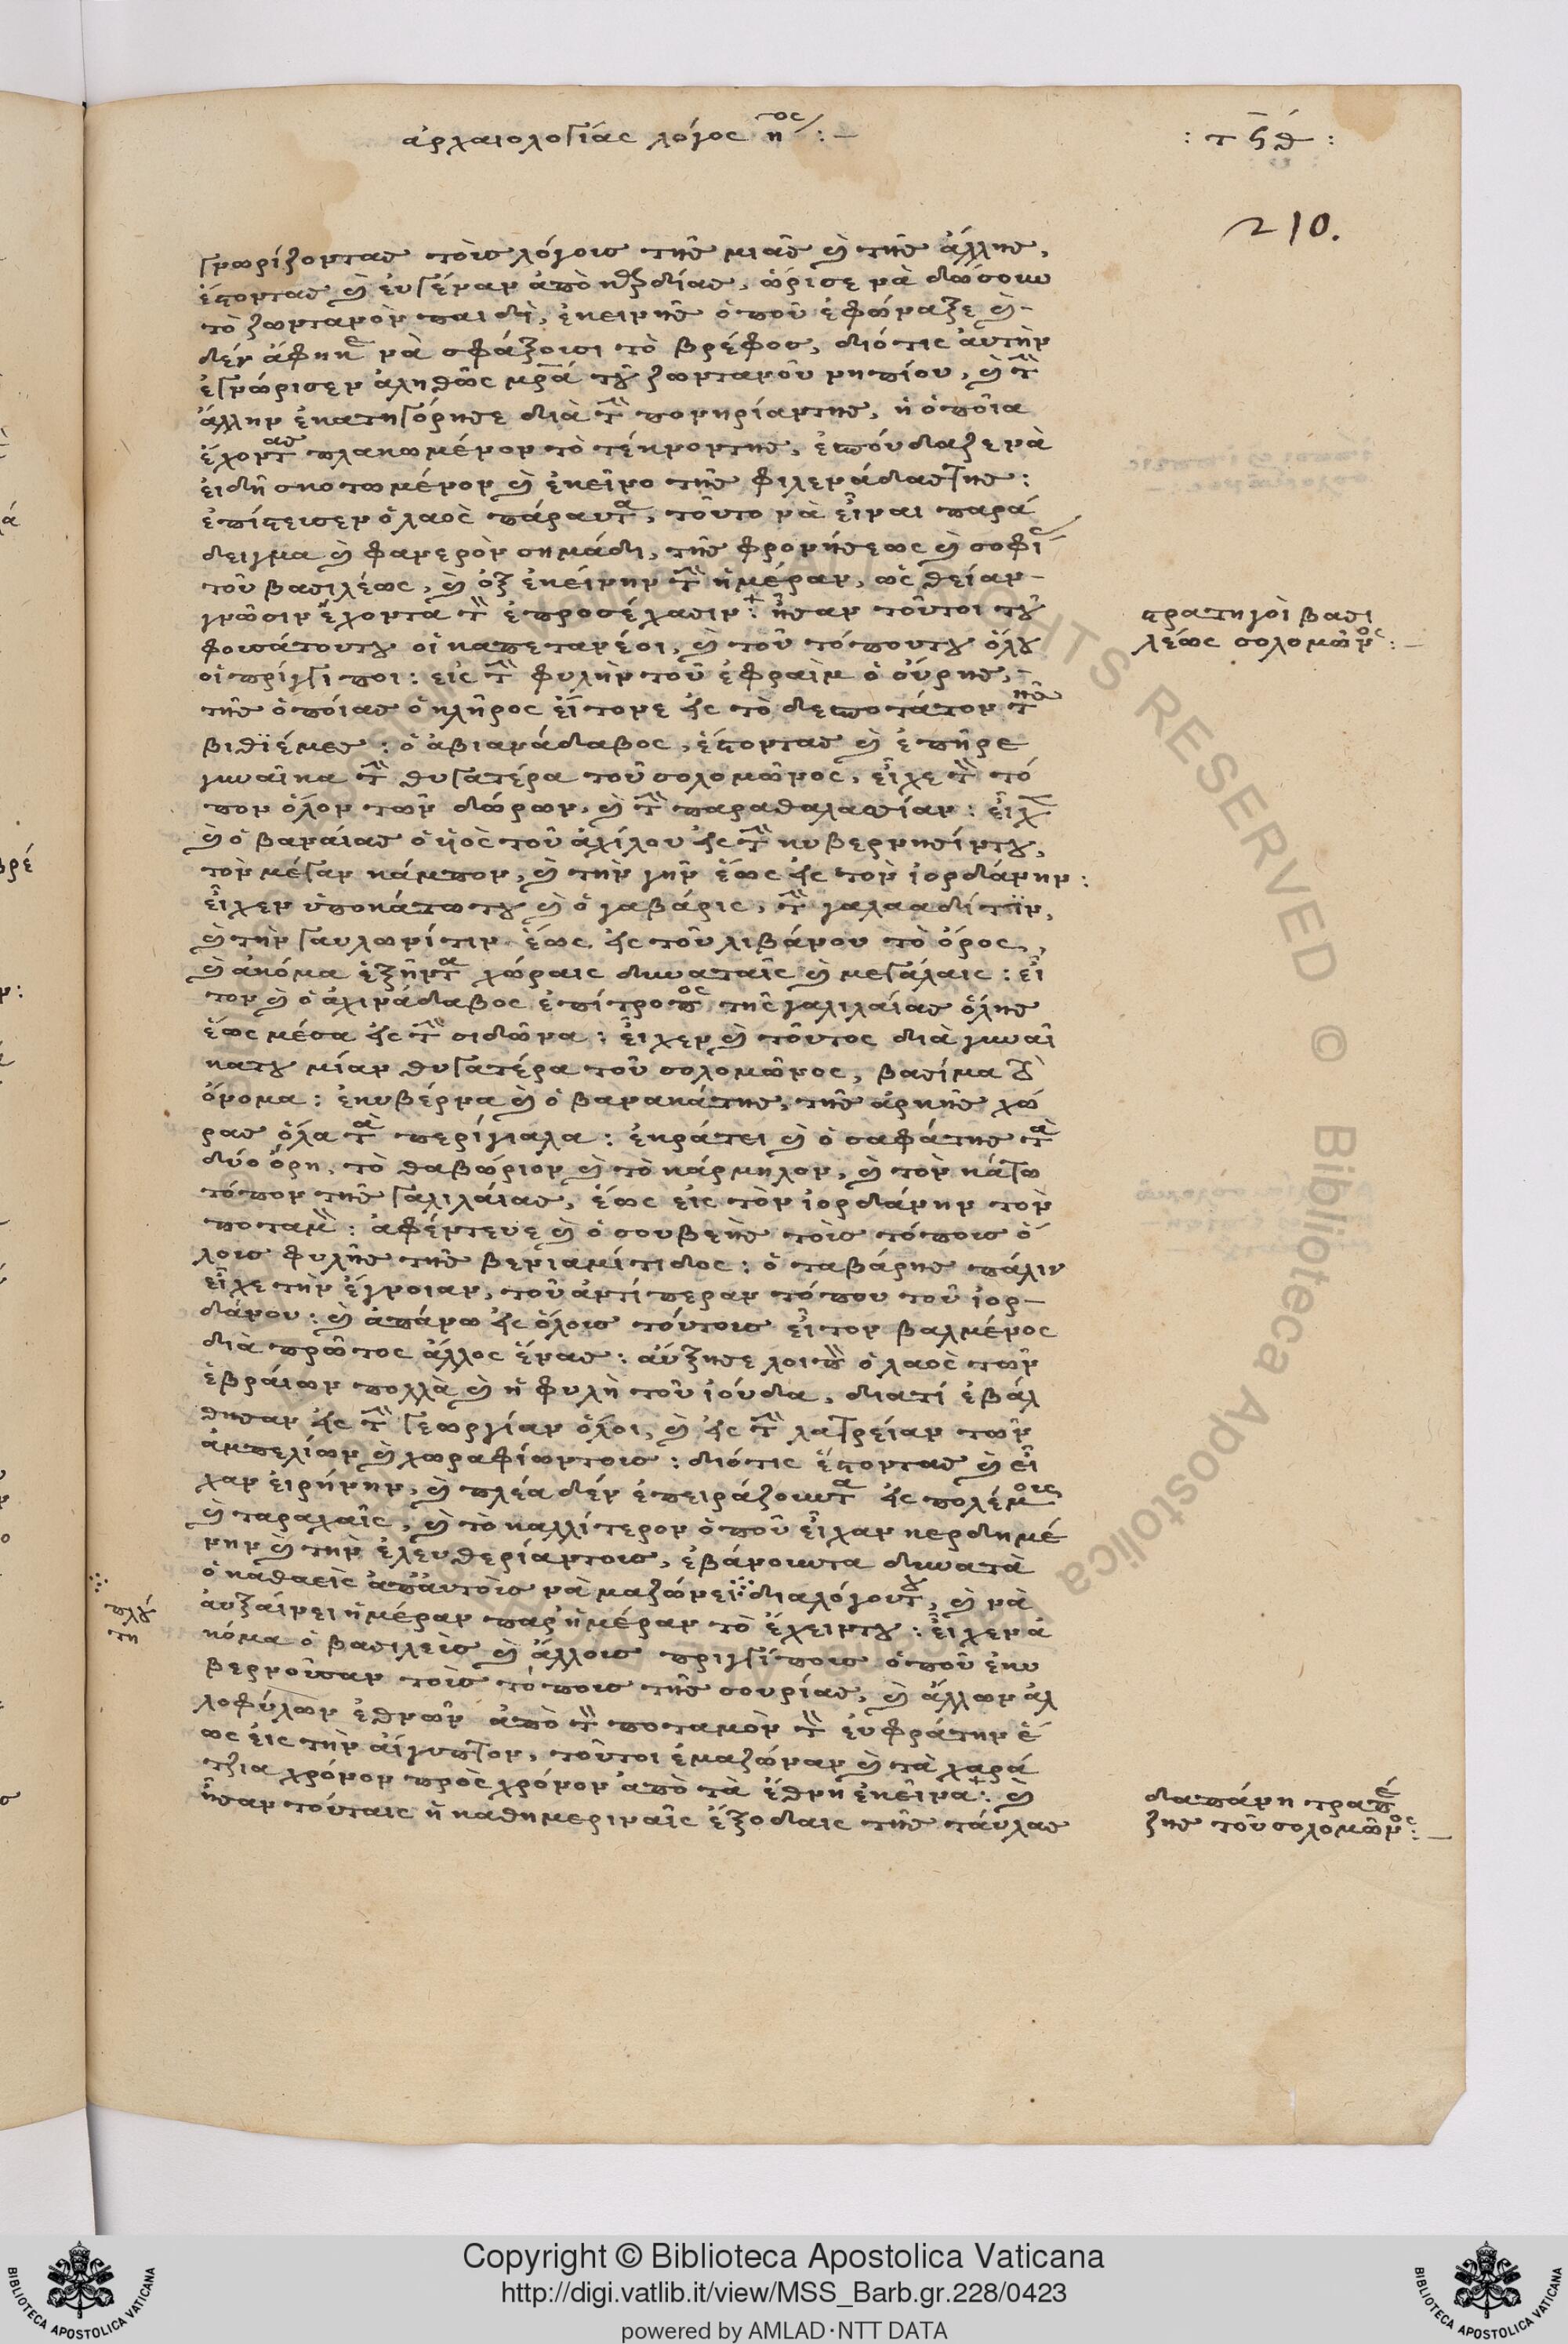 ἀρχαιολογίας λόγος η^ος :–
: τ ϟ θ :
210.
γνωρίζοντας τοὶς λόγοις τῆς μιᾶς καὶ τῆς ἄλλης,
ἔστοντας καὶ ἐυγέναν ἀπὸ καρδίας, ὥρισε νὰ δώσουν
τὸ ζωντανὸν παιδὶ, ἐκεινῆς ὁποῦ ἐφώναζε καὶ
δέν ἄφηκε νὰ σφάξουσι τὸ βρέφος, διότις ἀυτὴν
ἐγνώρισεν ἀληθῶς μρᾶ τοῦ ζωντανοῦ νηπίου, καὶ τὴν
ἄλλην ἐκατηγόρησε διὰ τὴν πονηρίαντης, ἡ ὁποῖα
ἔχοντας πλακωμένον τὸ τέκνοντης, ἐσπούδαζε νὰ
ἐιδῆ σκοτωμένον καὶ ἐκεῖνο τῆς φιλενάδαςτης :
ἐπίστευσεν ὁ λαὸς πάραυτα, τοῦτο νὰ εἶναι παρά
δειγμα καὶ φανερὸν σημάδι, τῆς φρονήσεως καὶ σοφί
τοῦ βασιλέως, καὶ ὀξ ἐκείνην τὴν ἡμέραν, ὡς θείαν
γνῶσιν ἔχοντά τὸν ἐπροσέχασιν : ἦσαν τοῦτοι τοῦ
φουσάτουτου οἱ καπετανέοι, καὶ τοῦ τόπουτου ὅλου
οἱ πρίγγιποι : εἰς τὴν φυλὴν τοῦ ἐφραὶμ ὁ οὔρης,
τῆς ὁποίας ὁ κλῆρος εἶτονε εἰς τὸ δεσποτάτον τῆς
βιθλϊέμες : ὁ ἀβιανάδαβος, ἔστοντας καὶ ἐπῆρε
γυναῖκα τὴν θυγατέρα τοῦ σολομῶνος, εἶχε τὸν τό
πον ὅλον τῶν δώρων, καὶ τὴν παραθαλασσίαν : εἶχε
καὶ ὁ βαναίας ὁ ὑιὸς τοῦ ἀχίλου εἰς τὴν κυβερνησίντου,
τὸν μέγαν κάμπον, καὶ τὴν γῆν ἕως εἰς τὸν ἰορδάνην :
εἶχεν ὑποκάτωτου καὶ ὁ γαβάρις, τὴν γαλααδίτϊν,
καὶ τὴν γαυλωνίτιν ἕως εἰς τοῦ λιβάνου τὸ ὄρος,
καὶ ἀκόμα ἑξῆντα χώραις δυναταῖς καὶ μεγάλαις : εἶ
τον καὶ ὁ ἀχινάδαβος ἐπίτροπος τῆς γαλιλαίας ὅλης
ἕως μέσα εἰς τὴν σιδῶνα : εἶχεν καὶ τοῦτος διὰ γυναῖ
κατου μίαν θυγατέρα τοῦ σολομῶνος, βασίμα τὸ
ὄνομα : ἐκυβέρνα καὶ ὁ βανακάτης, τῆς ἀρκῆς χώ
ρας ὅλα τὰ περίγιαλα : ἐκράτει καὶ ὁ σαφάτης τὰ
δύο ὄρη, τὸ θαβώριον καὶ τὸ κάρμηλον, καὶ τὸν κάτω
τόπον τῆς γαλιλάιας, ἕως εἰς τὸν ἰορδάνην τὸν
ποταμὸν : ἀφέντευε καὶ ὁ σουβεὴς τοὶς τόποις ὅ
λοις φυλῆς τῆς βενιαμίτιδος : ὁ ταβάρης πάλιν
εἶχε τὴν ἔγνοιαν, τοῦ ἀντίπεραν τόπου τοῦ ἰορ–
δάνου : καὶ ἀπάνω εἰς ὅλοις τούτοις εἶτον βαλμένος
διὰ πρῶτος ἄλλος ἕνας : αὔξησε λοιπὸν ὁ λαὸς τῶν
ἑβράιων πολλὰ καὶ ἡ φυλὴ τοῦ ἰούδα, διατί ἐβάλ
θησαν εἰς τὴν γεωργίαν ὅλοι, καὶ εἰς τὴν λατρείαν τῶν
ἀμπελίων καὶ χωραφίωντοις : διότις ἔστοντας καὶ εἶ
χαν ἐιρήνην, καὶ πλέα δέν ἐπειράζουντα εἰς πολέμοις
καὶ ταραχαῖς, καὶ τὸ καλλίτερον ὁποῦ εἶχαν κερδημέ
νην καὶ τὴν ἐλευθερίαντοις, ἐβάνουντα δυνατὰ
ὁ καθαεὶς ἀπαυτοὶς νὰ μαζώνει ⁘ διαλόγουτου, καὶ νὰ
ἀυξαίνει ἡμέραν παρ' ἡμέραν τὸ ἔχειντου : εἶχεν ἀ
κόμα ὁ βασιλεὶς καὶ ἄλλοις πριγγίποις ὁποῦ ἐκυ
βερνοῦσαν τοὶς τόποις τῆς συρίας, καὶ ἄλλων ἀλ
λοφύλων ἐθνῶν ἀπὸ τὸν ποταμὸν τὸν ἐυφράτην ἕ
ως εἰς τὴν αἴγυπτον, τοῦτοι ἐμαζώναν καὶ τὰ χαρά
τζια χρόνον πρὸς χρόνον ἀπὸ τὰ ἔθνη ἐκεῖνα : καὶ
ἦσαν τούταις ἡ καθημεριναῖς ἔξοδαις τῆς τάυλας
στρατηγοὶ βασι
λέως σολομῶνος :–
⁘ πλού
τη
δαπάνη τραπέ
ζης τοῦ σολομῶνος :–
Copyright © Biblioteca Apostolica Vaticana
http://digi.vatlib.it/view/MSS_Barb.gr.228/0423
powered by AMLAD·NTT DATA